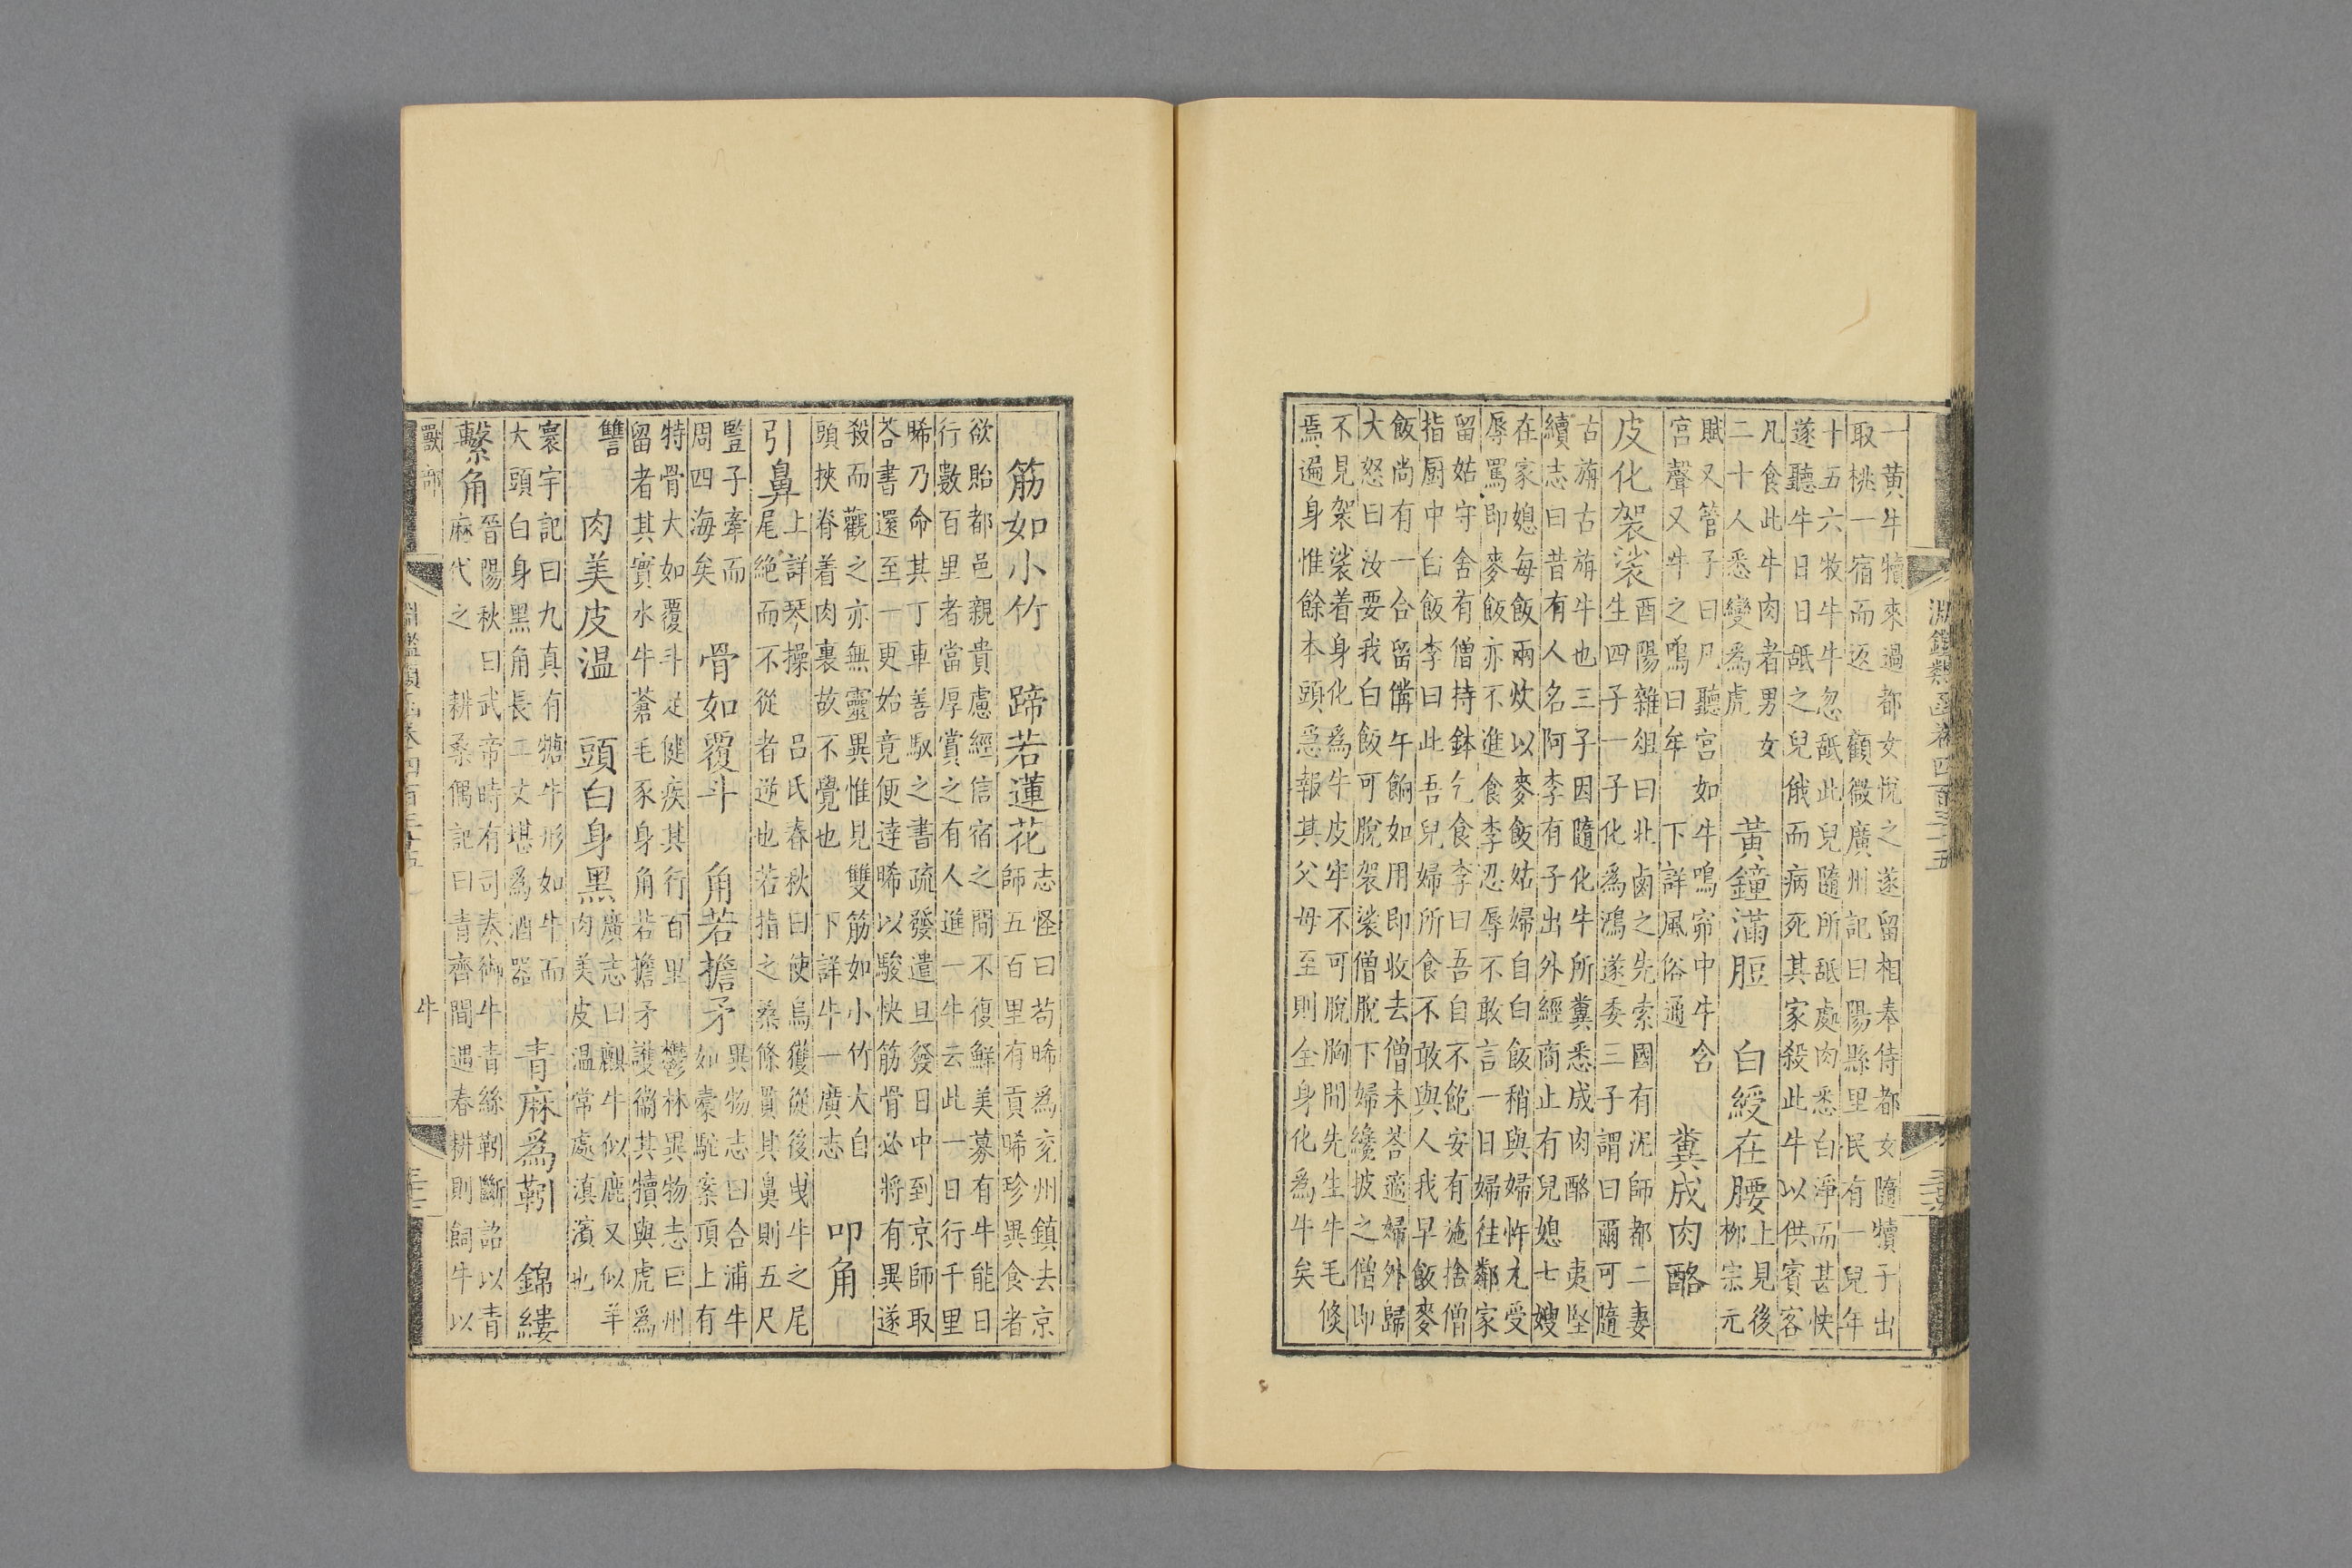 淵鑑類函卷四百三十五
一黃牛犢來過都女悅之遂留相奉侍都女隨犢子出
取桃一宿而返 顧微廣州記曰陽縣里民有一兒年
十五六牧牛牛忽舐此兒隨所舐處肉悉白淨而甚快
遂聽牛日日舐之兒俄而病死其家殺此牛以供賓客
凡食此牛肉者男女
二十人悉變為虎
黃鐘滿脰 白綬在腰
上見後
柳宗元
賦又管子曰凡聽宮如牛鳴窌中牛含
宮聲又牛之鳴曰牟 下詳風俗通
糞成肉酪
皮化袈裟
酉陽雜俎曰北鹵之先索國有泥師都二妻
生四子一子化為鴻遂委三子謂曰爾可隨
古旃古旃牛也三子因隨化牛所糞悉成肉酪 夷堅
續志曰昔有人名阿李有子出外經商止有兒媳七嫂
在家媳每飯兩炊以麥飯姑婦自白飯稍與婦忤充受
辱罵即麥飯亦不進食李忍辱不敢言一日婦往鄰家
留姑守舍有僧持鉢乞食李曰吾自不飽安有施捨僧
指廚中白飯李曰此吾兒婦所食不敢與人我早飯麥
飯尚有一合留備午餉如用即收去僧未荅適婦外歸
大怒曰汝要我白飯可脫袈裟僧脫下婦纔披之僧即
不見袈裟着身化為牛皮牢不可脫胸間先生牛毛倏
焉遍身惟餘本頭急報其父母至則全身化為牛矣
筋如小竹 蹄若蓮花
志怪曰苟晞為兗州鎮去京
師五百里有貢晞珍異食者
欲貽都邑親貴慮經信宿之間不復鮮美募有牛能日
行數百里者當厚賞之有人進一牛云此一日行千里
晞乃命其丁車善馭之書疏發遣旦發日中到京師取
荅書還至一更始竟便達晞以駿快筋骨必將有異遂
殺而觀之亦無靈異惟見雙筋如小竹大自
頭挾脊着肉裏故不覺也 下詳牛一廣志
叩角
引鼻
上詳琴操 呂氏春秋曰使烏獲從後曳牛之尾
尾絕而不從者逆也若指之桑條貫其鼻則五尺
豎子牽而
周四海矣
骨如覆斗 角若擔矛
異物志曰合浦牛
如橐駝案項上有
特骨大如覆斗足健疾其行百里 鬱林異物志曰州
留者其實水牛蒼毛豕身角若擔矛護犢其犢與虎為
讐
肉美皮温 頭白身黑
廣志曰麒牛似鹿又似羊
肉美皮温常處滇濱也
寰宇記曰九真有㹎牛形如牛而
大頭白身黑角長二丈堪為酒器
青麻為靷 錦縷
繫角
晉陽秋曰武帝時有司奏御牛青絲靷斷詔以青
麻代之 耕桑偶記曰青齊間遇春耕則飼牛以
獸部 牛